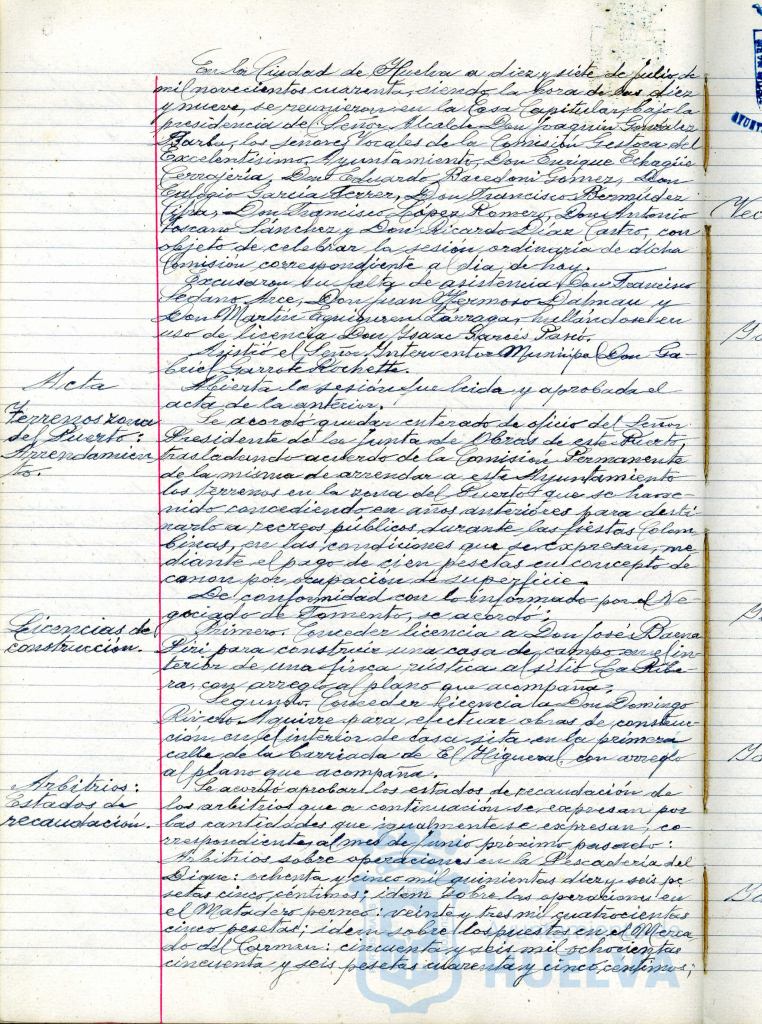 En la Ciudad de Huelva a diez y siete de julio, de
mil novecientos cuarenta, siendo la hora de las diez
y nueve, se reunieron en la Casa Capitular, bajo la
presidencia del Señor Alcalde Don Joaquín González
Barba, los señores Vocales de la Comisión Gestora del
Excelentísimo Ayuntamiento, Don Enrique Echagüe
Cerrajería, Don Eduardo Bacedoni Gómez, Don
Eulogio García Ferrer, Don Francisco Bermúdez
Don Francisco López Romero, Don Antonio
Toscano Sánchez y Don Ricardo Díaz Castro, con
objeto de celebrar la sesión ordinaria de dicha
Comisión correspondiente a día de hoy.
Excusaron su falta de asistencia Don Francisco
Sedano Arce, Don Juan Hermoso Dalmau y
Don Martín Eguiguren Lárraga, hallándose en
uso de licencia Don Ysaac Garcés Pascó.
Asistió el Señor Interventor Municipal Don Ga-
briel Garrote Rochette.
Acta
Abierta la sesión fue leida y aprobada el
acta de la anterior.
Terrenos zona
del Puerto:
Arrendamien
to.
Se acordó quedar enterado de oficio del Señor
Presidente de la Junta de Obras de este Puerto,
trasladando acuerdo de la Comisión Permanente
de la misma de arrendar a este Ayuntamiento
los terrenos en la zona del Puerto que se han ve-
nido concediendo en años anteriores para desti-
narlo a recreos públicos durante las fiestas Colom-
binas, en las condiciones que se expresan, me
diante el pago de cien pesetas en concepto de
canon por ocupación de superficie.
De conformidad con lo informado por el Ne-
gociado de Fomento, se acordó:
Licencias de
construcción.
Primero. Conceder licencia a Don José Baena
Piri para construir una casa de campo en el in-
terior de una finca rústica al sitio La Ribe-
ra, con arreglo al plano que acompaña.
Segundo. Conceder licencia a Don Domingo
Rivero Aguirre para efectuar obras de construc-
ción en el interior de casa sita en la primera
calle de la barriada de El Higueral con arreglo
al plano que acompaña.
Arbitrios:
Estados de
recaudación.
Se acordó aprobar los estados de recaudación de
los arbitrios que a continuación se expresan por
las cantidades que igualmente se expresan, co-
rrespondientes al mes de Junio próximo pasado:
Arbitrios sobre operaciones en la Pescadería del
Dique: ochenta y cinco mil quinientas diez y seis pe-
setas cinco céntimos; idem sobre las operaciones en
el Matadero perneo: veinte y tres mil cuatrocientas
cinco pesetas; idem sobre los puestos en el Merca
do del Carmen: cincuenta y seis mil ochocientas
cincuenta y seis pesetas cuarenta y cinco centimos;
HUELVA